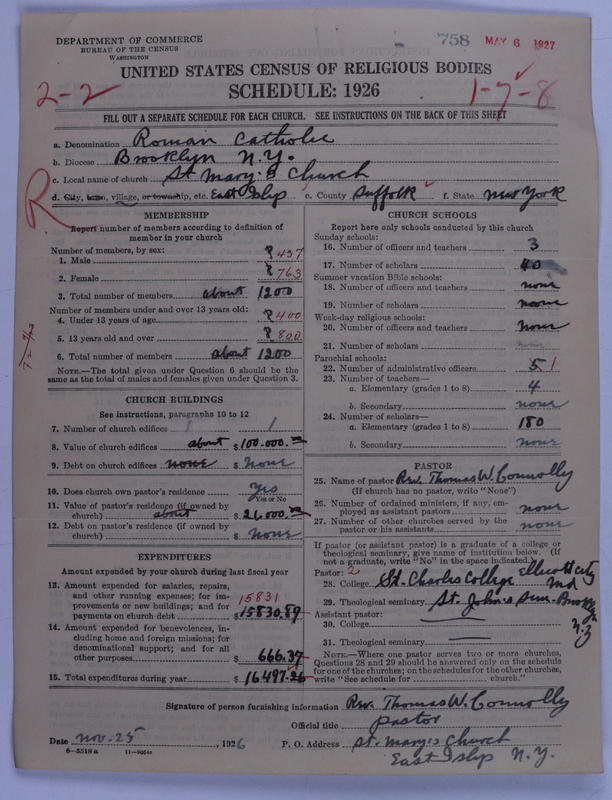 DEPARTMENT OF COMMERCE
BUREAU OF THE CENSUS
WASHINGTON
758 MAY 6 1927
UNITED STATES CENSUS OF RELIGIOUS BODIES
SCHEDULE: 1926
2-2
1-7-8
FILL OUT A SEPARATE SCHEDULE FOR EACH CHURCH. SEE INSTRUCTIONS ON THE BACK OF THIS SHEET
a. Denomination Roman Catholic
b. Diocese Brooklyn N.Y.
c. Local name of church St Mary's Church
d. City, town, village, or township, etc. East Islip e. County Suffolk f. State New York
R
MEMBERSHIP
Report number of members according to definition of member in your church
Number of members, by sex:
1. Male ? 437
2. Female ? 763
3. Total number of members about 1200
Number of members under and over 13 years old:
4. Under 13 years of age ? 400
5. 13 years old and over ? 800
6. Total number of members about 1200
NOTE.—The total given under Question 6 should be the same as the total of males and females given under Question 3.
CHURCH BUILDINGS
See instructions, paragraphs 10 to 12
7. Number of church edifices 1 1
8. Value of church edifices about $100.000.00
9. Debt on church edifices none $ None
10. Does church own pastor's residence Yes
Yes or No
11. Value of pastor's residence (if owned by church) about $26.000.00
12. Debt on pastor's residence (if owned by church) $ None
EXPENDITURES
Amount expended by your church during last fiscal year
13. Amount expended for salaries, repairs, and other running expenses; for improvements or new buildings; and for payments on church debt 15831 $15830.89
14. Amount expended for benevolences, including home and foreign missions; for denominational support; and for all other purposes $ 666.37
15. Total expenditures during year $16497.26
CHURCH SCHOOLS
Report here only schools conducted by this church
Sunday schools:
16. Number of officers and teachers 3
17. Number of scholars 40
Summer vacation Bible schools:
18. Number of officers and teachers none
19. Number of scholars none
Week-day religious schools:
20. Number of officers and teachers None
21. Number of scholars none
Parochial schools:
22. Number of administrative officers 5 1
23. Number of teachers—
a. Elementary (grades 1 to 8) 4
b. Secondary none
24. Number of scholars—
a. Elementary (grades 1 to 8) 180
b. Secondary none
PASTOR
25. Name of pastor Rev. Thomas W. Connolly
(If church has no pastor, write "None")
26. Number of ordained ministers, if any, employed as assistant pastors none
27. Number of other churches served by the pastor or his assistants none
If pastor (or assistant pastor) is a graduate of a college or theological seminary, give name of institution below. (If not a graduate, write "No" in the space indicated.)
Pastor: 2
28. College St. Charles College Ellicott City Md
29. Theological seminary St. John's Sem. Brooklyn N.Y.
Assistant pastor:
30. College
31. Theological seminary
NOTE.—Where one pastor serves two or more churches, Questions 28 and 29 should be answered only on the schedule for one of the churches; on the schedules for the other churches, write "See schedule for church."
Signature of person furnishing information Rev. Thomas W. Connolly
Official title Pastor
Date Nov. 25, 1926 P. O. Address St. Mary's Church
East Islip N.Y.
6-5518a